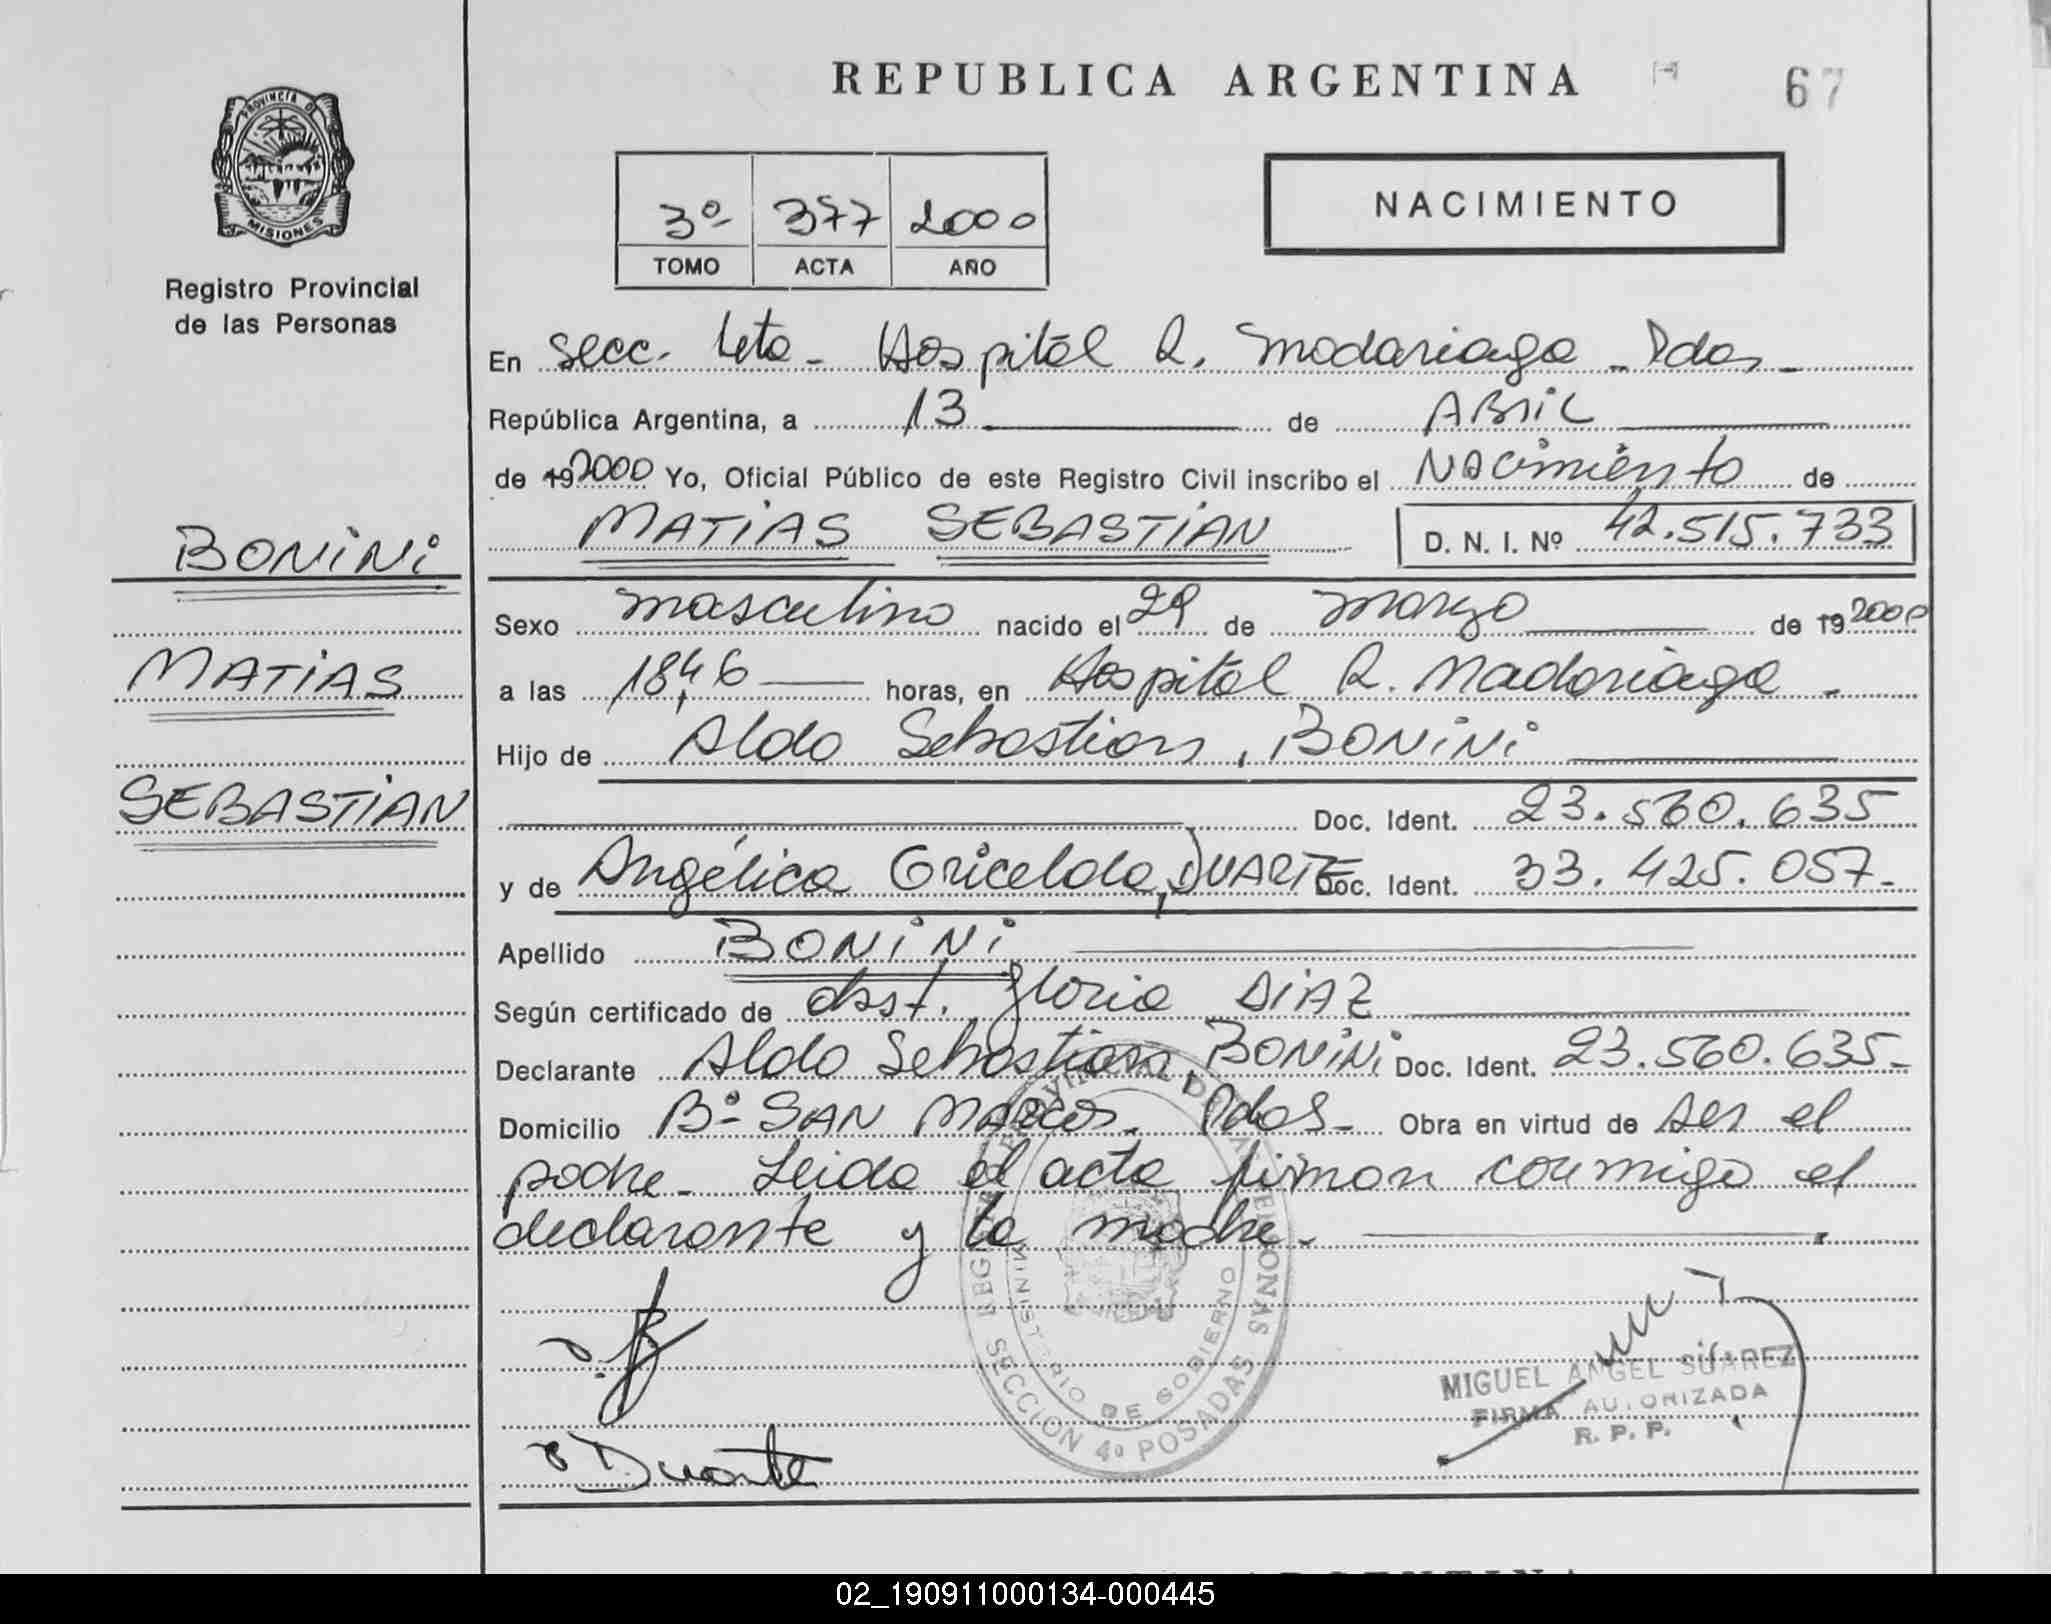 REPUBLICA ARGENTINA
67
PROVINCIA DE
MISIONES
Registro Provincial
de las Personas
3º 377 2000
TOMO ACTA AÑO
NACIMIENTO
En secc. 4ta - Hospital R. Madariaga - Pdas -
República Argentina, a 13 de ABRIL
de 19 2000 Yo, Oficial Público de este Registro Civil inscribo el Nacimiento de
MATIAS SEBASTIAN D. N. I. Nº 42.515.733
BONINI
MATIAS
SEBASTIAN
Sexo masculino nacido el 29 de marzo de 19 2000
a las 18,46 horas, en Hospital R. Madariaga -
Hijo de Aldo Sebastian, BONINI
Doc. Ident. 23.560.635
y de Angélica Gricelda, DUARTE Doc. Ident. 33.425.057-
Apellido BONINI
Según certificado de obst. Gloria DIAZ
Declarante Aldo Sebastian, BONINI Doc. Ident. 23.560.635-
Domicilio Bº SAN MARCOS - Pdas - Obra en virtud de ser el
padre - Leida el acta firman conmigo el
declarante y la madre -
MINISTERIO DE GOBIERNO
SECCION 4ª POSADAS
Duarte
MIGUEL ANGEL SUAREZ
FIRMA AUTORIZADA
R. P. P.
02_190911000134-000445